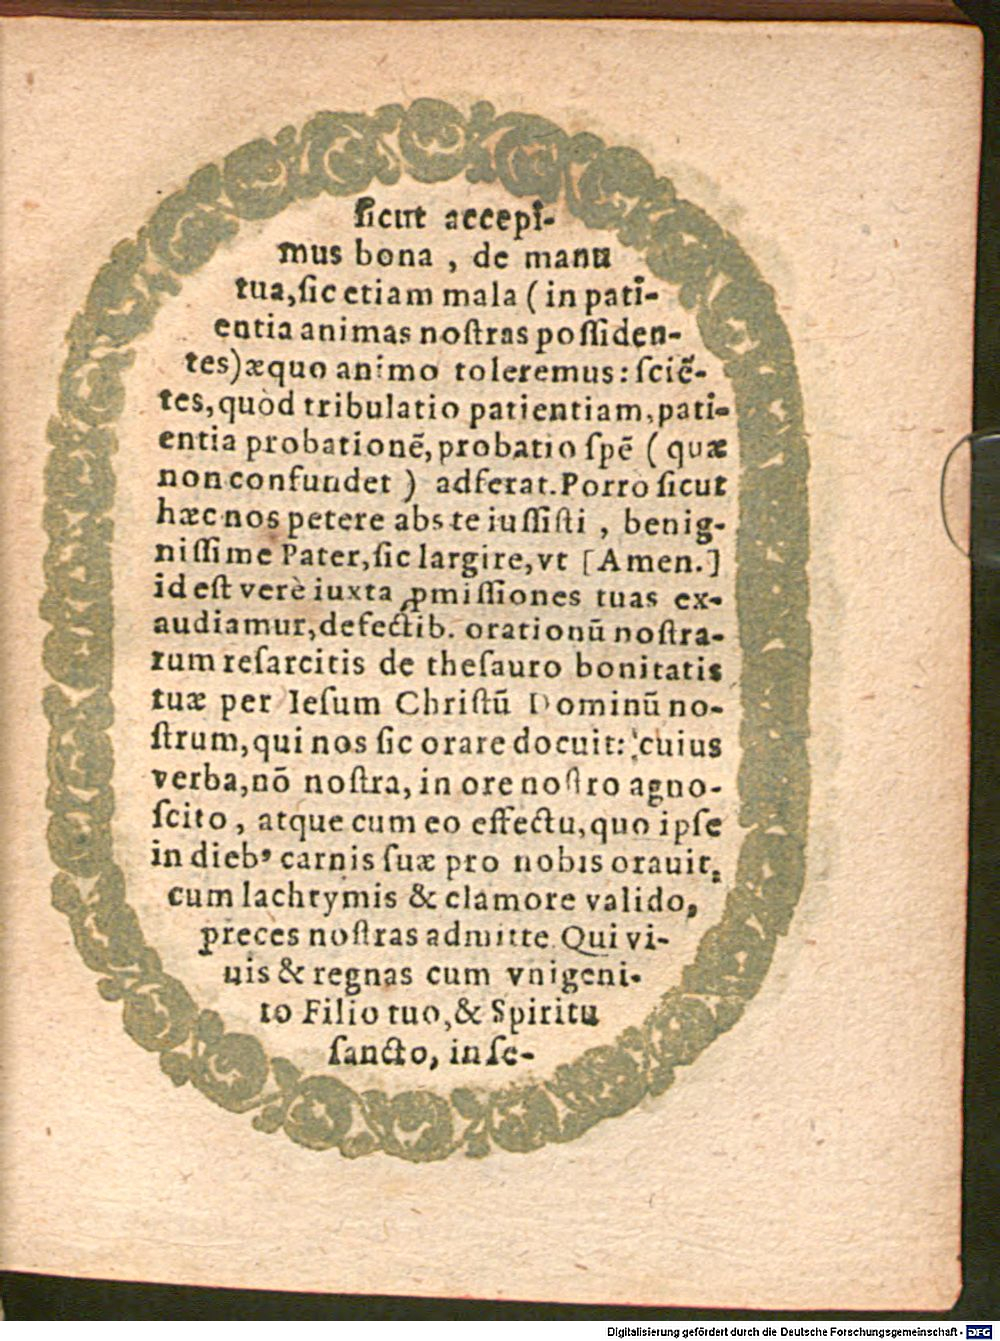 ſicut accepi-
mus bona , de manu
tua,ſic etiam mala ( in pati-
entia animas noſtras poſſiden-
tes)æquo animo toleremus: ſciẽ-
tes,quòd tribulatio patientiam,pati-
entia probationẽ,probatio ſpẽ ( quæ
non confundet ) adferat.Porrò ſicut
hæc nos petere abs te iuſſiſti , benig-
niſſime Pater,ſic largire,vt [Amen.]
id eſt verè iuxta ꝓmiſſiones tuas ex-
audiamur,defectib. orationũ noſtra-
rum reſarcitis de theſauro bonitatis
tuæ per Ieſum Chriſtũ Dominũ no-
ſtrum,qui nos ſic orare docuit: cuius
verba,nõ noſtra, in ore noſtro agno-
ſcito , atque cum eo effectu,quo ipſe
in diebꝰ carnis ſuæ pro nobis orauit,
cum lachrymis & clamore valido,
preces noſtras admitte. Qui vi-
uis & regnas cum vnigeni-
to Filio tuo,& Spiritu
ſancto, in ſe-
Digitalisierung gefördert durch die Deutsche Forschungsgemeinschaft - DFG